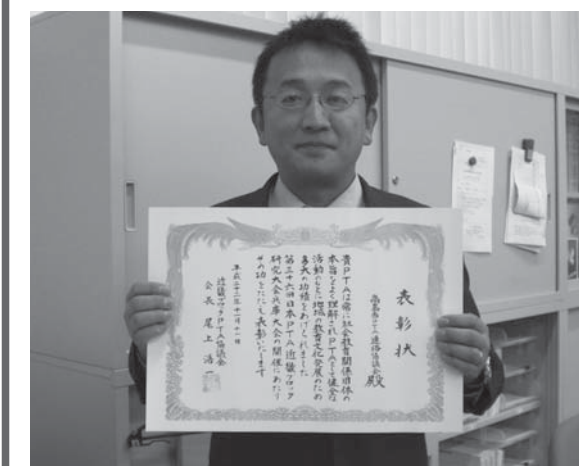 表彰状
高砂市PTA連絡協議会殿
貴PTAは常に社会教育関係団体の
本旨をよく理解されPTAとして健全な
活動のもとに地域の教育文化発展のため
多大の功績をあげられました
第三十六回日本PTA近畿ブロック
研究大会兵庫大会の開催にあたり
その功をたたえ表彰いたします
平成二十二年十一月十一日
近畿ブロックPTA協議会
会長 尾上浩一